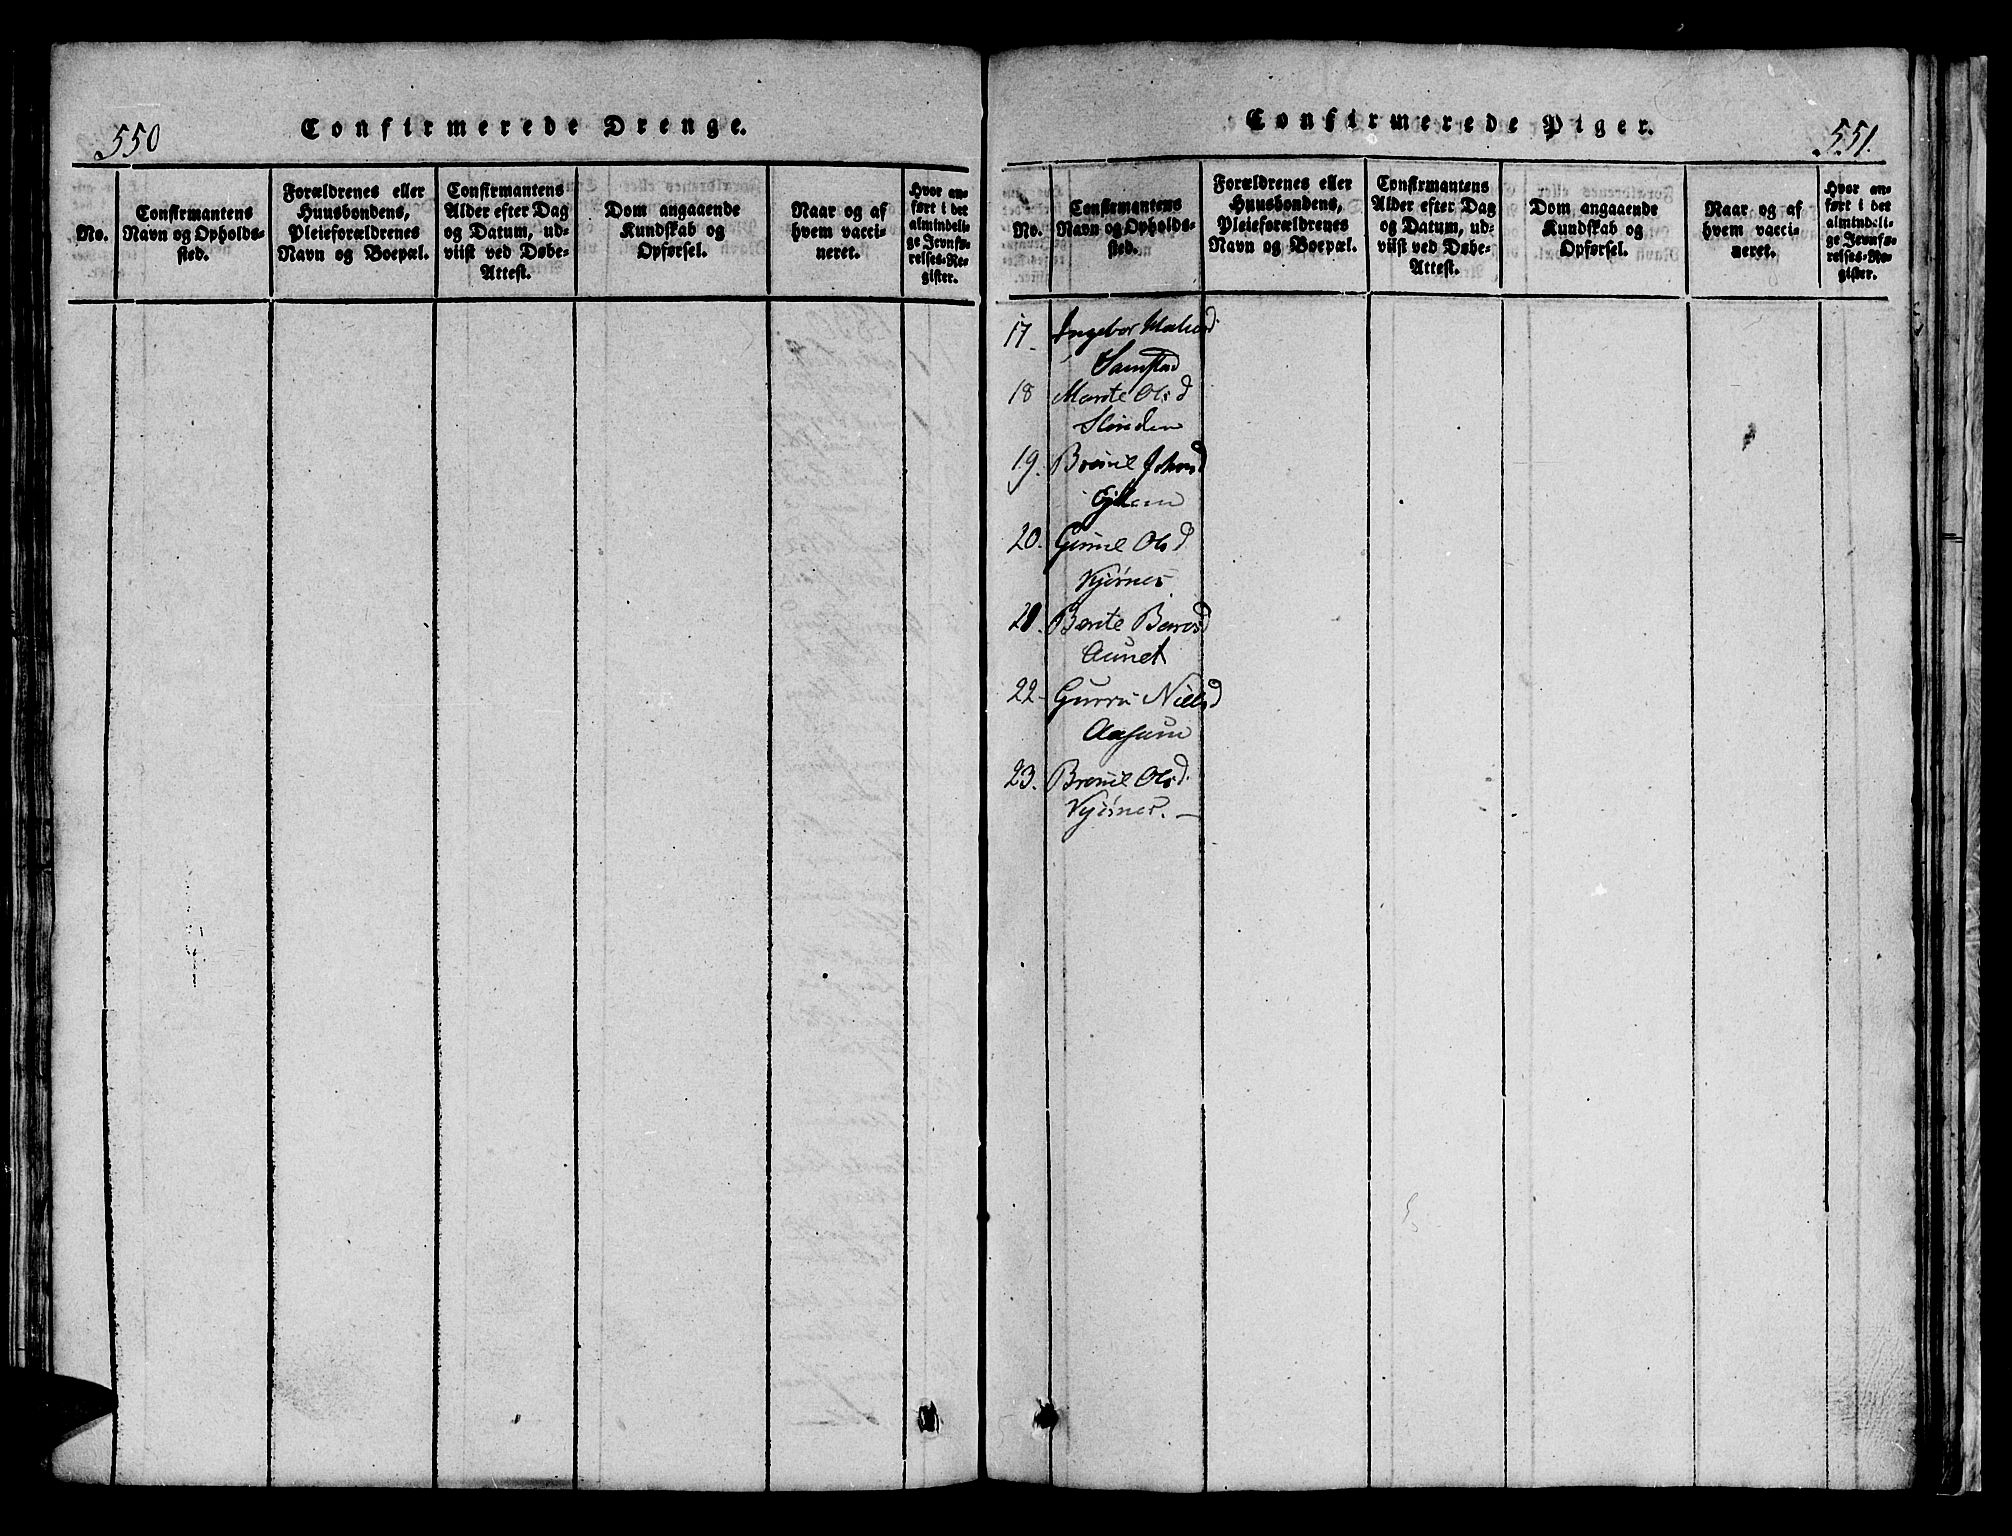 550
Confirmerede Drenge.
No.
Confirmantens
Navn og Opholds-
sted.
Forældrenes eller
Huusbondens,
Pleieforældrenes
Navn og Boepæl.
Confirmantens
Alder efter Dag
og Datum, ud-
viist ved Døbe-
Attest.
Dom angaaende
Kundskab og
Opførsel.
Naar og af
hvem vacci-
neret.
Hvor an-
ført i det
almindeli-
ge Jevnfø-
relses-Re-
gister.
Confirmerede Piger.
551.
No.
Confirmantens
Navn og Opholds-
sted.
Forældrenes eller
Huusbondens,
Pleieforældrenes
Navn og Boepæl.
Confirmantens
Alder efter Dag
og Datum, ud-
viist ved Døbe-
Attest.
Dom angaaende
Kundskab og
Opførsel.
Naar og af
hvem vacci-
neret.
Hvor an-
ført i det
almindeli-
ge Jevnfø-
relses-Re-
gister.
17 Ingebor
Samstad
18 Marte Olsd
Slinden
19. Johnsd
20. Olsd
Kjørnes
21. Berete
Aunet
22 Gurru Nielsd
23. Olsd
Kjørnes.